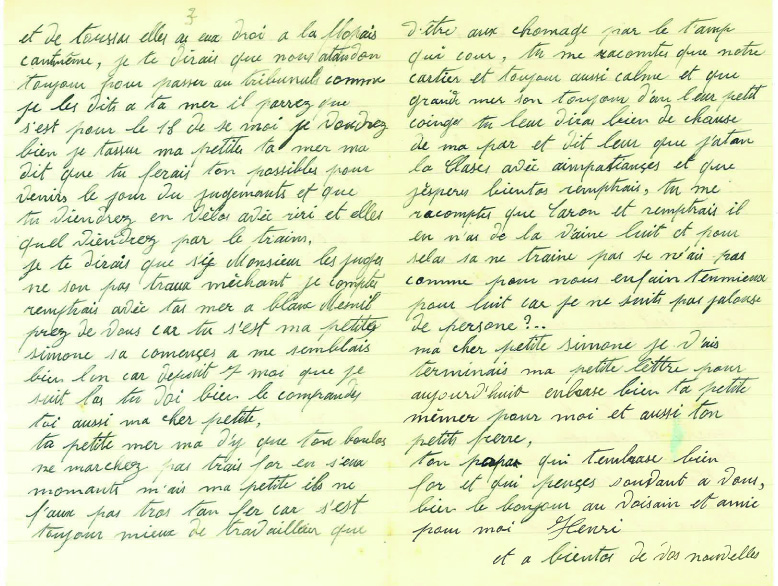 3
et de toussas elles as eux droi a la Mopais
cantmême, je te dirais que nous atandon
toujour pour passer au tribunals comme
je les dits a ta mer il parrez que
s'est pour le 18 de se moi je voudrez
bien je tassur ma petites ta mer ma
dit que tu ferais ton possibles pour
venirs le jour du jugemants et que
tu viendrez en vélos avée riri et elles
quel viendrez par le trains,
je te dirais que sis Monsieur les juges
ne son pas traux méchant je comptes
remptrais avée tas mer a blanc Mesnil
prez de vous car tu s'est ma petites
simone sa comenges a me semblais
bien lon car depuit 7 moi que je
suit las tu doi bien le comprandes
toi aussi ma cher petite,
ta petite mer ma d'y que ton boulos
ne marchez pas trais for en s'eux
momants m'ais ma petite ils ne
f'aux pas tros tan fer car s'est
toujour mieux de travailleur que
d'être aux chomage par le tamp
qui cour, tu me racomtes que notre
cartier et toujour aussi calme et que
grands mer son toujour d'an leur petit
coinges tu leur diras bien de chause
de ma par et dit leur que j'atan
la Clases avée aimpatianges et que
j'ésperes bientos remptrais, tu me
racomptes que Caron et remptrais il
en n'as de la v'aine luit et pour
selas sa ne traine pas se n'ais pas
comme pour nous enfain tenmieux
pour luit car je ne suits pas jalouse
de persone?...
ma cher petite simone je v'ais
terminais ma petite lettre pour
aujourd'huit enbrase bien ta petite
mémer pour moi et aussi ton
petits frerre,
ton papa qui tembrase bien
for et qui penges souvant a vous,
bien le bonjour au voisain et amie
pour moi Henri
et a bientos de vos nouvelles